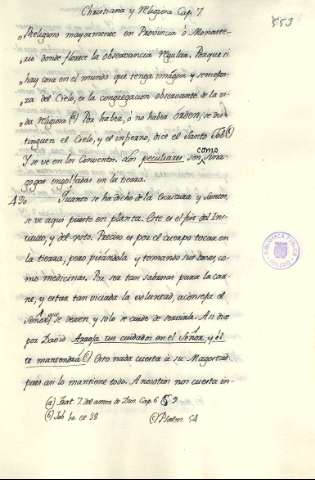 Christiana y Religiosa Cap. 7
553
"Religion mayormente en Provincia ò Monaste-
"rio donde florece la observancia Regular. Porque si
"hay cosa en el mundo que tenga imagen y semejan-
"za del Cielo, es la congregacion observante de la vi-
"da Religiosa (a) Por haber, ò no haber orden, se dis-
tinguen el Cielo, y el infierno, dice el Santo Job (b)
Y se ve en los Conventos. Los peculiares son, como
gogas en la tierra.
430 Quanto se ha dicho de la Escritura y Santos,
se ve aqui puesto en planta. Este es el fin del Ins-
tituto, y del voto. Preciso es por el cuerpo tocar en
la tierra; pero pisandola y tomando sus dones co-
mo medicinas. Por ser tan sabrosas para la car-
ne, y estar tan viciada la voluntad, aconseja el
Señor qe. se dexen, y solo se cuide de servirle. Asi dice
por David: Arroja tu cuidado en el Señor, y él
te mantendrá (c) Esto nada cuesta à su Magestad
pues asi lo mantiene todo. A nosotros nos cuesta in-
(a) Trat. 7. del amor de Dios Cap. 6 § 9
(b) Job 10. v. 22 (c) Psalm. 54